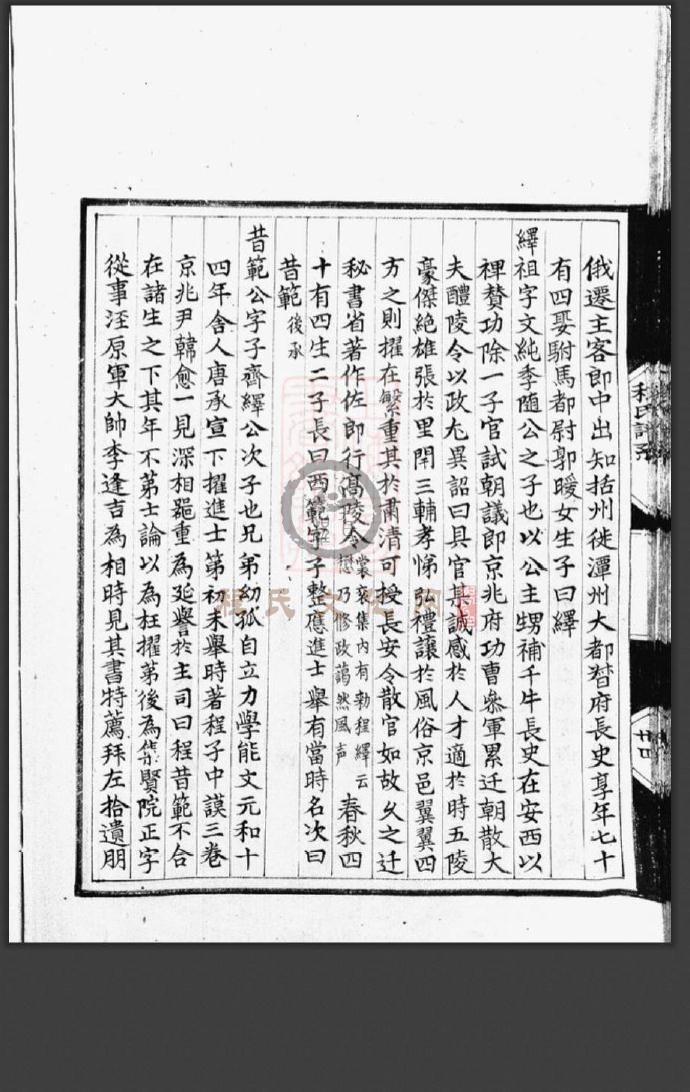 俄遷主客郎中出知括州徙潭州大都督府長史享年七十
有四娶駙馬都尉郭曖女生子曰繹
繹祖字文純季随公之子也以公主甥補千牛長史在安西以
裨賛功除一子官試朝議郎京兆府功曹叅軍累迁朝散大
夫醴陵令以政尤異詔曰具官某誠感於人才適於時五陵
豪傑絶雄張於里閈三輔孝悌弘禮讓於風俗京邑翼翼四
方之則擢在繁重其於肃清可授長安令散官如故久之迁
秘書省著作佐郎行髙陵令裳衮集内有勑程繹云
懋乃修政藹然風声春秋四
十有四生二子長曰西範字子整應進士舉有當時名次曰
昔範後承
昔範公字子齊繹公次子也兄弟幼孤自立力學能文元和十
四年舍人唐承宣下擢進士第初未舉時著程子中謨三巻
京兆尹韓愈一見深相噐重為延譽於主司曰程昔範不合
在諸生之下其年不第士論以為枉擢第後為集賢院正字
從事涇原軍大帥李逢吉為相時見其書特薦拜左拾遺朋
程氏譜系
廿四
程氏文化网